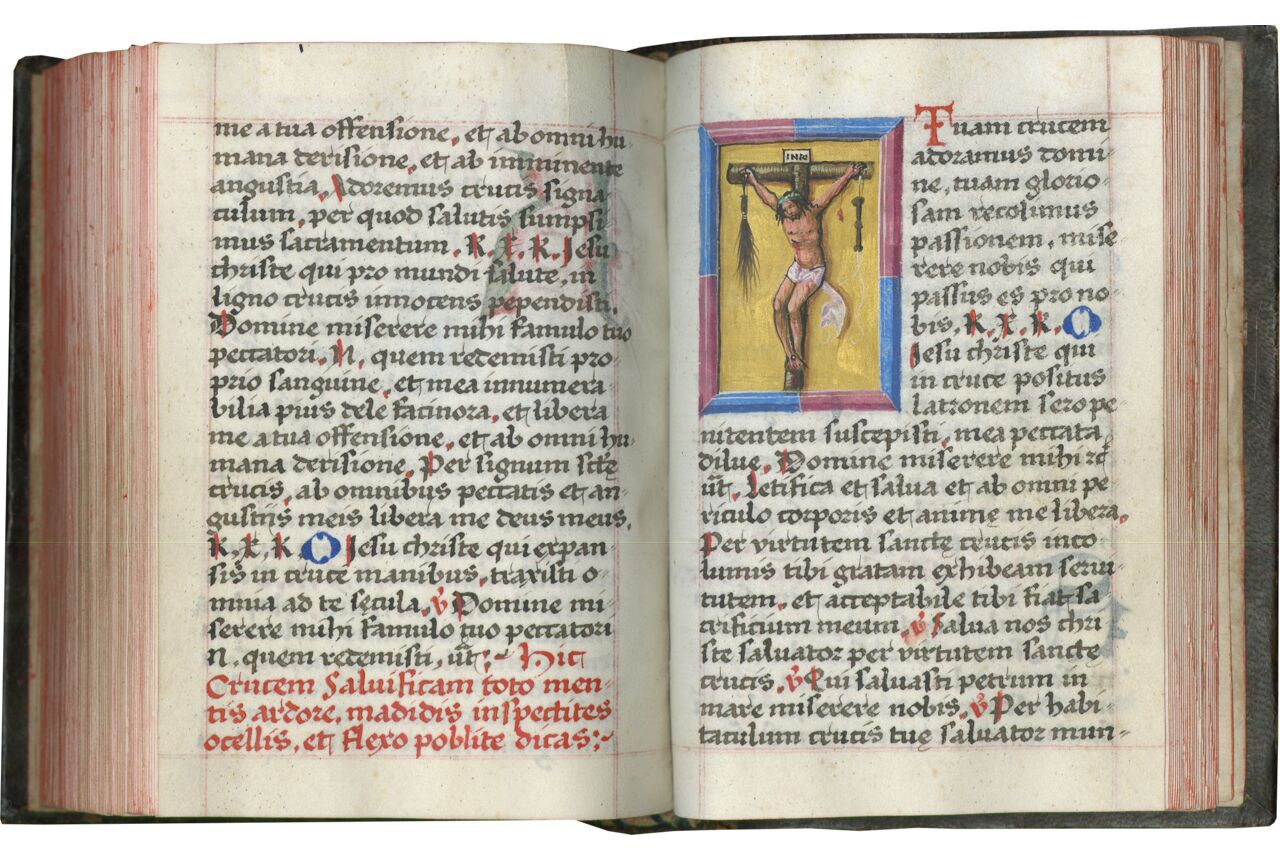 me a tua offensione, et ab omni hu-
mana derisione, et ab imminente
angustia. Adoremus crucis signa-
culum, per quod salutis sumpsi-
mus sacramentum. K. X. K. Jesu
christe qui pro mundi salute, in
ligno crucis innocens pependisti.
Domine miserere mihi famulo tuo
peccatori. N. quem redemisti pro-
prio sanguine, et mea innumera-
bilia pius dele facinora, et libera
me a tua offensione, et ab omni hu-
mana derisione. Per signum sctę
crucis, ab omnibus peccatis et an-
gustiis meis libera me deus meus.
K. X. K. O Jesu christe qui expan-
sis in cruce manibus, traxisti o-
mnia ad te sęcula. V Domine mi-
serere mihi famulo tuo peccatori
N. quem redemisti, ut̄ :~ Hic
Crucem Saluificam toto men-
tis ardore, madidis inspectites
ocellis, et flexo poblite dicas:~
INRI
Tuam crucem
adoramus domi-
ne, tuam glorio-
sam recolimus
passionem, mise-
rere nobis qui
passus es pro no-
bis. K. X. K. O
Jesu christe qui
in cruce positus
latronem sero pe-
nitentem suscepisti, mea peccata
dilue. Domine miserere mihi ⁊c̄
ut̄. Letifica et salua et ab omni pe-
riculo corporis et animę me libera.
Per virtutem sanctę crucis inco-
lumis tibi gratam exhibeam serui-
tutem, et acceptabile tibi fiat sa-
crificium meum. V Salua nos chri-
ste saluator per virtutem sanctę
crucis. V Qui saluasti petrum in
mare miserere nobis. V Per habi-
taculum crucis tuę saluator mun-